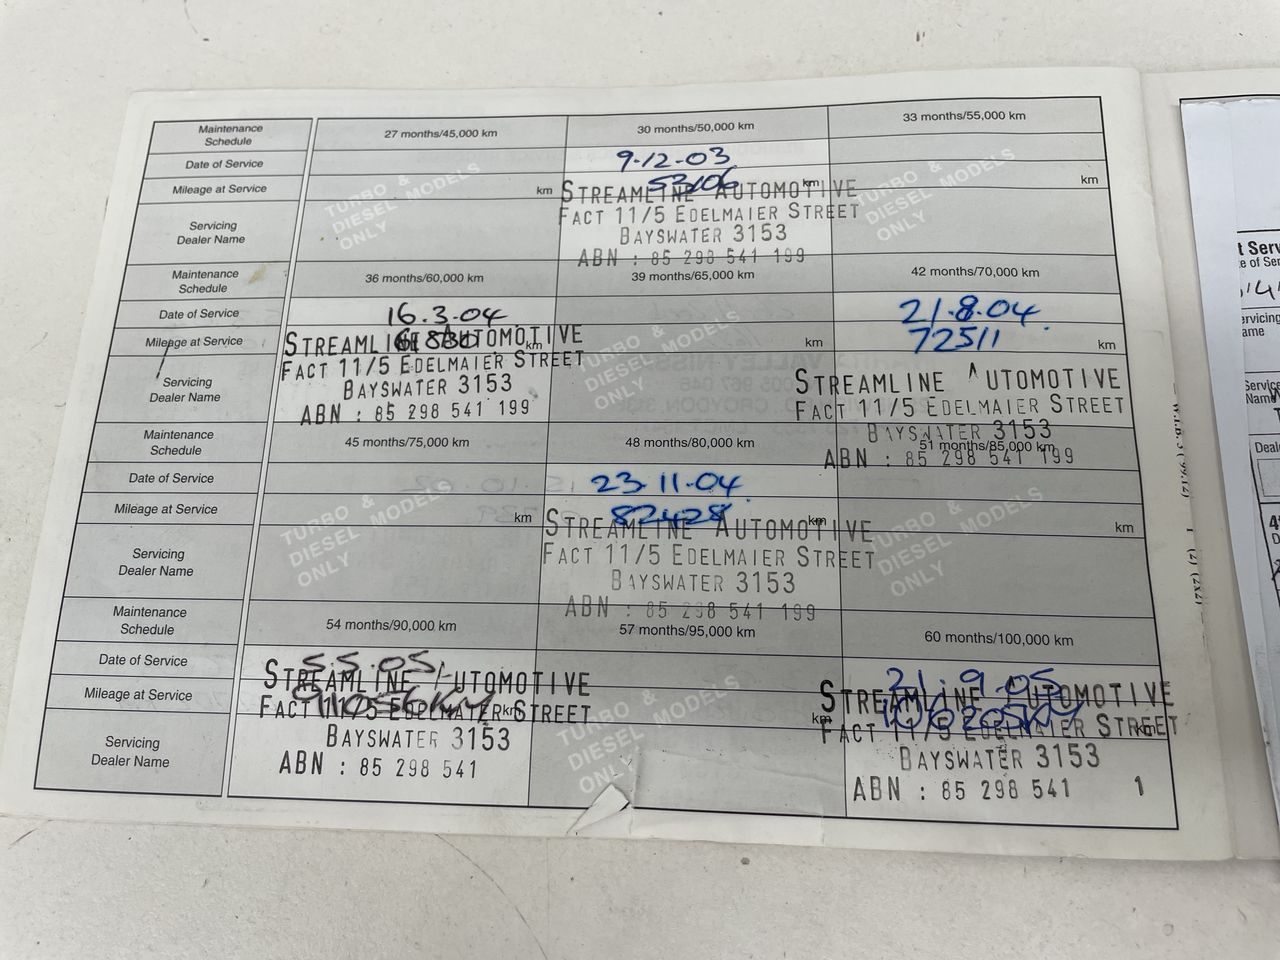 Maintenance Schedule
27 months/45,000 km
30 months/50,000 km
33 months/55,000 km
Date of Service
9-12-03
Mileage at Service
km
53106 km
km
Servicing Dealer Name
TURBO & DIESEL MODELS ONLY
STREAMLINE AUTOMOTIVE
FACT 11/5 EDELMAIER STREET
BAYSWATER 3153
ABN : 85 298 541 199
TURBO & DIESEL MODELS ONLY
Maintenance Schedule
36 months/60,000 km
39 months/65,000 km
42 months/70,000 km
Date of Service
16.3.04
21.8.04
Mileage at Service
km
km
72511 km
Servicing Dealer Name
STREAMLINE AUTOMOTIVE
FACT 11/5 EDELMAIER STREET
BAYSWATER 3153
ABN : 85 298 541 199
TURBO & DIESEL MODELS ONLY
STREAMLINE AUTOMOTIVE
FACT 11/5 EDELMAIER STREET
BAYSWATER 3153
ABN : 85 298 541 199
Maintenance Schedule
45 months/75,000 km
48 months/80,000 km
51 months/85,000 km
Date of Service
23.11.04
Mileage at Service
km
82428 km
km
Servicing Dealer Name
TURBO & DIESEL MODELS ONLY
STREAMLINE AUTOMOTIVE
FACT 11/5 EDELMAIER STREET
BAYSWATER 3153
ABN : 85 298 541 199
TURBO & DIESEL MODELS ONLY
Maintenance Schedule
54 months/90,000 km
57 months/95,000 km
60 months/100,000 km
Date of Service
5.5.05
21.9.05
Mileage at Service
km
km
km
Servicing Dealer Name
STREAMLINE AUTOMOTIVE
FACT 11/5 EDELMAIER STREET
BAYSWATER 3153
ABN : 85 298 541
TURBO & DIESEL MODELS ONLY
STREAMLINE AUTOMOTIVE
FACT 11/5 EDELMAIER STREET
BAYSWATER 3153
ABN : 85 298 541 1